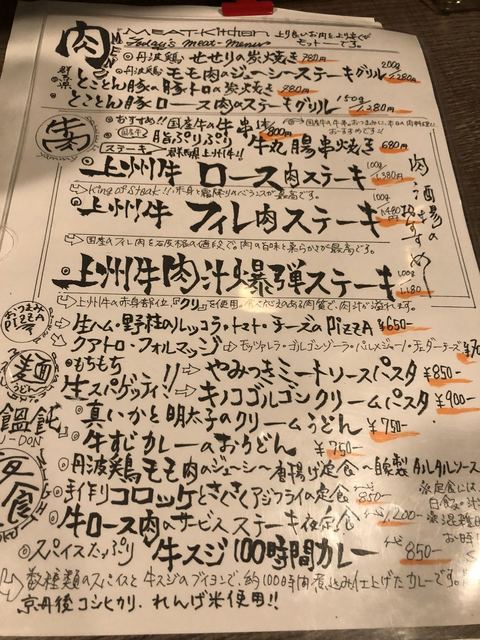 肉 MENU
MEAT-Kitchen
Today's Meat-Menu
より良いお肉をより安くが
モットーです。
丹波鶏 せせりの炭火焼き 780円
丹波鶏 モモ肉のジューシーステーキグリル 1,280円
群馬産
とことん豚の豚トロの炭火焼き 980円
とことん豚 ロース肉のステーキグリル 150g 1,280円
牛肉
おすすめ!! 国産牛の牛串 1本 800円
国産牛 脂ぷりぷり 牛丸腸串焼き 680円
ステーキ 群馬県産上州牛!!
上州牛 ロース肉ステーキ 100g 1,380円
King of Steak!! 赤身と霜降りのバランスが最高です。
上州牛 フィレ肉ステーキ 100g 1,480円
国産のフィレ肉を
で、肉の旨味と柔らかさが最高です。
上州牛肉汁爆弾ステーキ 100g 1,180
上州牛の赤身部位、『クリ』を使用。
肉汁が溢れます。
肉酒場のおすすめ
おつまみPIZZA
生ハム・野菜のルッコラ・トマト・チーズのPIZZA ¥650-
クアトロ・フォルマッジ モッツァレラ・ゴルゴンゾーラ・パルメジャーノ・チェダーチーズ
麺
うどん
もちもち
生スパゲッティ!!
やみつきミートソースパスタ ¥850-
キノコゴルゴンクリームパスタ ¥900-
饂飩
U-DON
真いかと明太子のクリームうどん ¥750-
牛すじカレーのおうどん ¥750-
夜食
丹波鶏モモ肉のジューシー唐揚げ定食 自家製タルタルソース
手作りコロッケとさくさくアジフライの定食 850-
牛ロース肉のサービスステーキ夜定食 1,200-
スパイスたっぷり 牛スジ100時間カレー 850-
※定食には、
白食・
お時
数種類のスパイスと牛スジのブイヨンで、約100時間煮込み仕上げたカレーです。
京丹後コシヒカリ、れんげ米使用!!